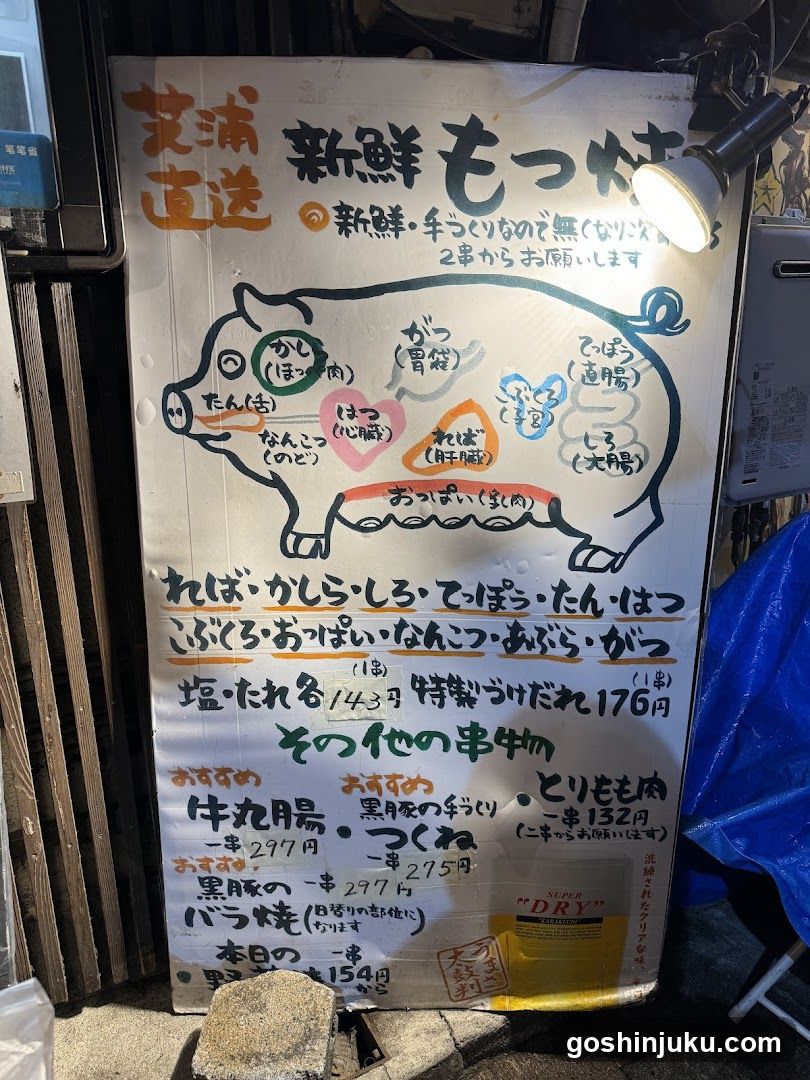 芝浦
直送
新鮮 もつ焼
新鮮・手づくりなので無くなり次
2串からお願いします
かし
(ほっぺ肉)
がつ
(胃袋)
てっぽう
(直腸)
たん(舌)
はつ
(心臓)
こぶくろ
(子宮)
なんこつ
(のど)
れば
(肝臓)
しろ
(大腸)
おっぱい(乳肉)
れば・かしら・しろ・てっぽう・たん・はつ
こぶくろ・おっぱい・なんこつ・あぶら・がつ
塩・たれ各 (1串) 143円 特製づけだれ (1串) 176円
その他の串物
おすすめ
牛丸腸
一串 297円
おすすめ
黒豚の手づくり
・つくね
一串 275円
・とりもも肉
一串 132円
(二串からお願いします)
おすすめ
黒豚の 一串 297円
バラ焼(日替りの部位になります)
本日の 一串
154円
から
SUPER
"DRY"
"KARAKUCHI"
洗練されたクリアな味、
うまさ
太鼓判
笔笔省
goshinjuku.com